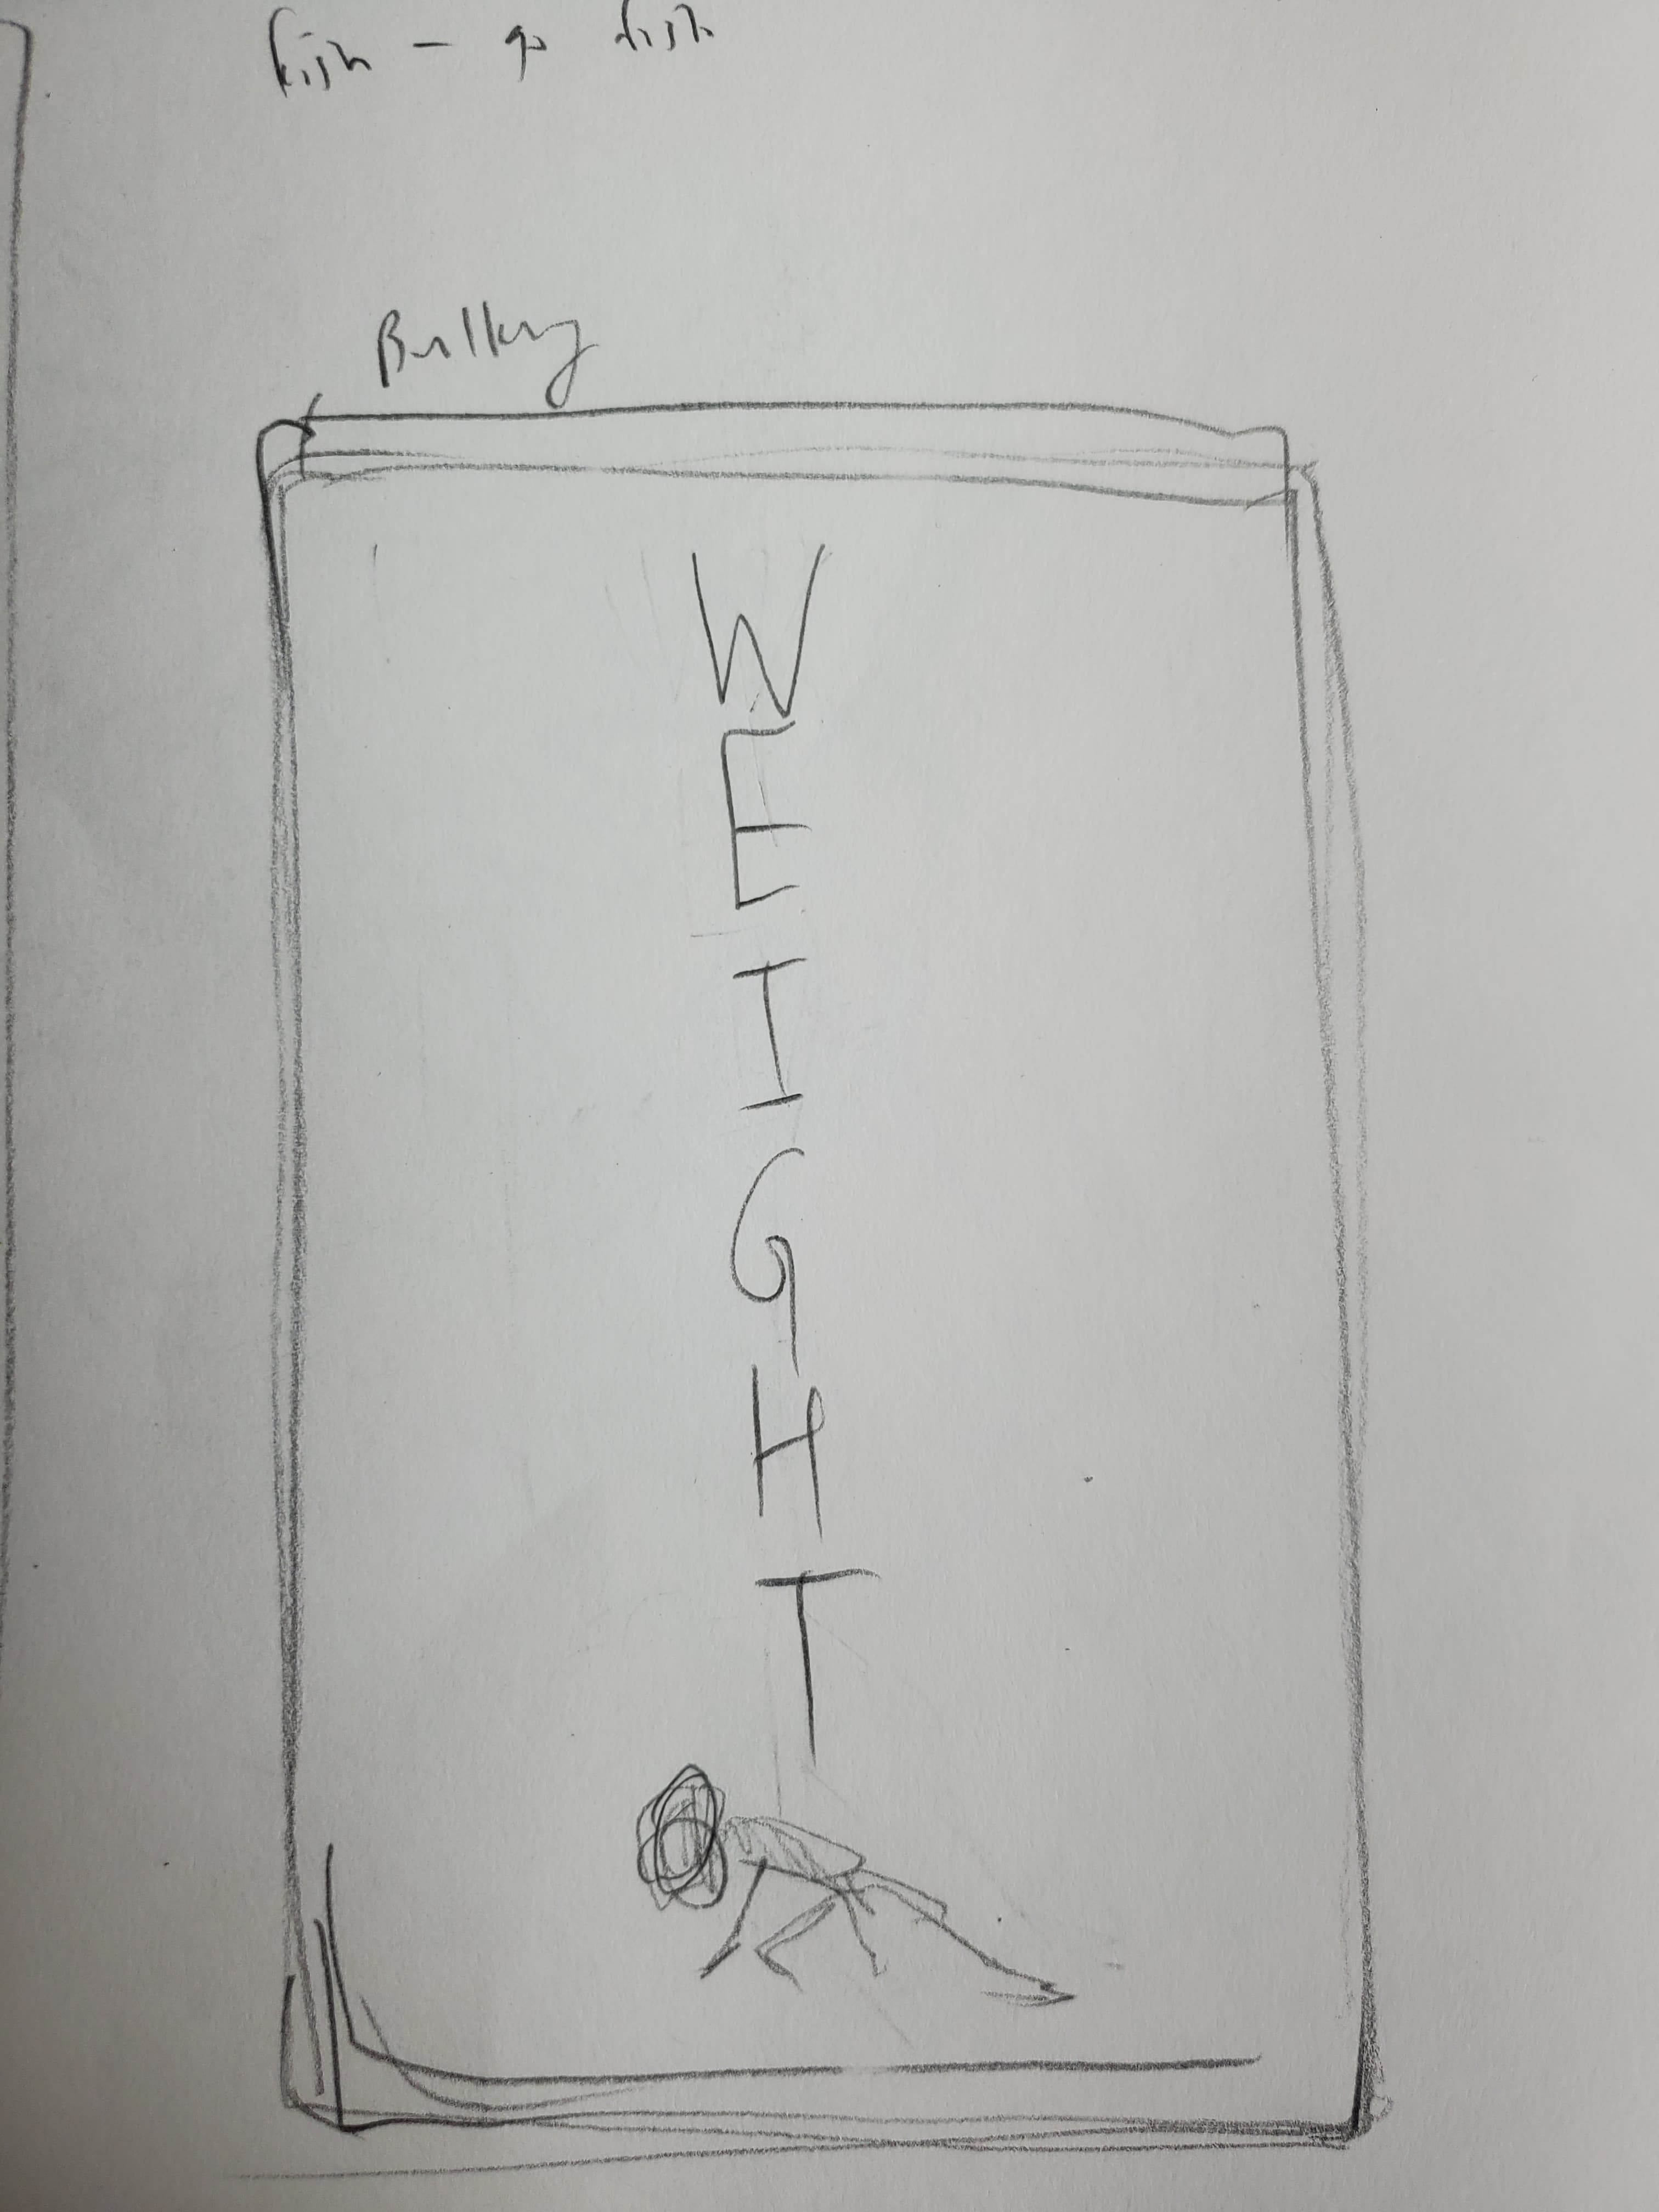 fish - go fish
Bulky
W
E
I
G
H
T